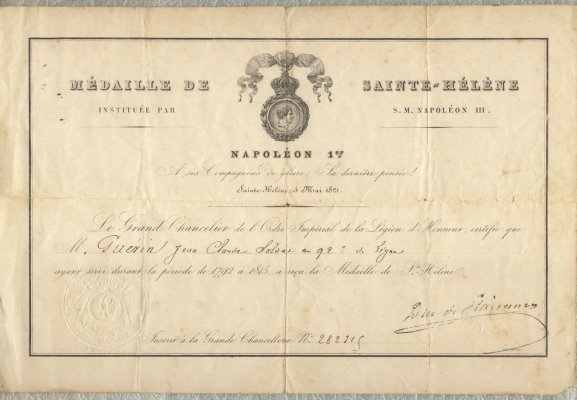 MÉDAILLE DE SAINTE-HÉLÈNE
INSTITUÉE PAR S. M. NAPOLÉON III.
NAPOLÉON 1er
A ses Compagnons de gloire, Sa dernière pensée!
Sainte-Hélène, 5 Mai 1821.
Le Grand Chancelier de l'Ordre Impérial de la Légion d'Honneur, certifie que
M. Guerin Jean Claude Soldat au 92e de ligne
ayant servi durant la période de 1792 à 1815, a reçu la Médaille de Ste Hélène.
Duc de Plaisance
Inscrit à la Grande Chancellerie No 282315